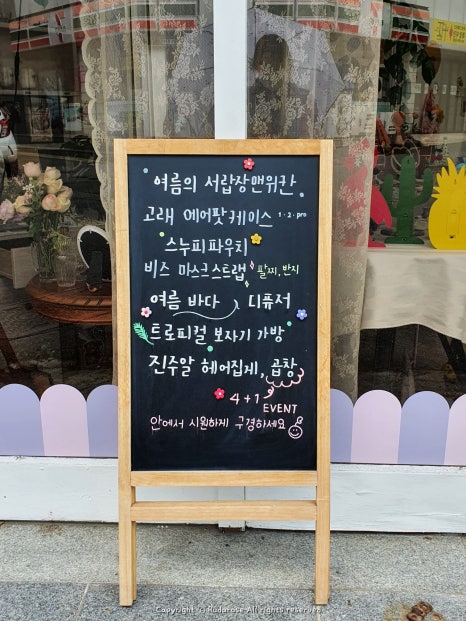 여름의 서랍장맨위칸
고래 에어팟케이스 1·2·pro
스누피파우치
비즈 마스크스트랩, 팔찌, 반지
여름 바다 디퓨저
트로피컬 보자기 가방
진주알 헤어집게, 곱창
4+1
EVENT
안에서 시원하게 구경하세요
Copyright © Rudarose All rights reserved